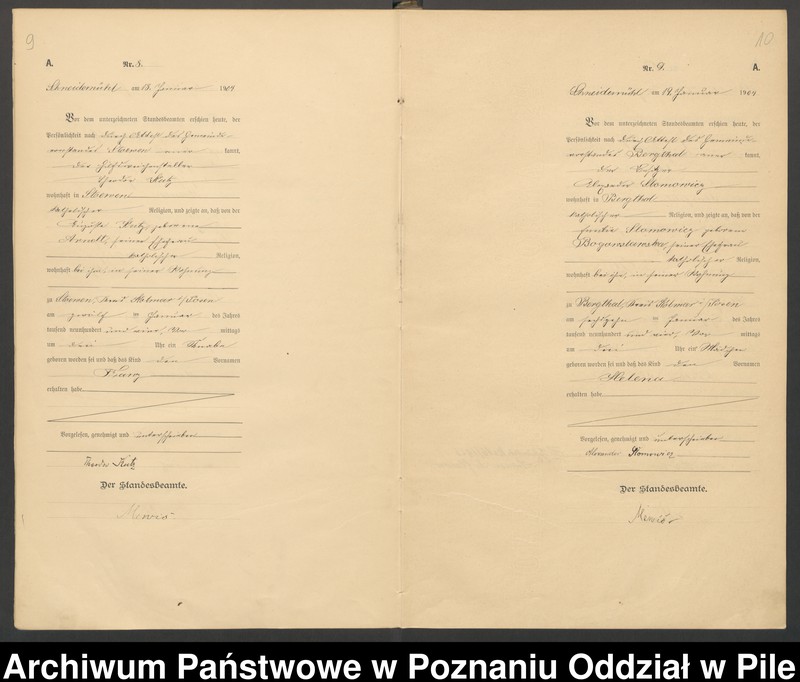 9
A.
Nr. 8.
Schneidemühl am 13. Januar 1904
Vor dem unterzeichneten Standesbeamten erschien heute, der
Persönlichkeit nach durch Attest des Gemeinde
vorstandes Stöwen kannt,
der Hilfsweichensteller
Theodor Kutz
wohnhaft in Stöwen
katholischer Religion, und zeigte an, daß von der
Augusta Kutz geborene
Arndt, seiner Ehefrau
katholischer Religion,
wohnhaft bei ihm, in seiner Wohnung
zu Stöwen, Kreis Kolmar i/Posen
am zwölf ten Januar des Jahres
tausend neunhundert und vier, Vor mittags
um drei Uhr ein Knabe
geboren worden sei und daß das Kind den Vornamen
Franz
erhalten habe
Vorgelesen, genehmigt und unterschrieben
Theodor Kutz
Der Standesbeamte.
10
Nr. 9.
A.
Schneidemühl am 14. Januar 1904
Vor dem unterzeichneten Standesbeamten erschien heute, der
Persönlichkeit nach durch Attest des Gemeinde
vorstandes Bergthal kannt,
der Besitzer
Alexander
wohnhaft in Bergthal
katholischer Religion, und zeigte an, daß von der
geborene
seiner Ehefrau
katholischer Religion,
wohnhaft bei ihm, in seiner Wohnung
zu Bergthal, Kreis Kolmar i/Posen
am ten Januar des Jahres
tausend neunhundert und vier, Vor mittags
um drei Uhr ein Mädchen
geboren worden sei und daß das Kind den Vornamen
Helena
erhalten habe
Vorgelesen, genehmigt und unterschrieben
Alexander
Der Standesbeamte.
Archiwum Państwowe w Poznaniu Oddział w Pile